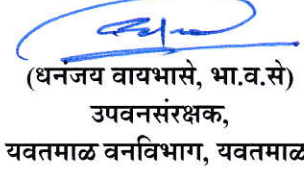 (धनंजय वायभासे, भा.व.से)
उपवनसंरक्षक,
यवतमाळ वनविभाग, यवतमाळ